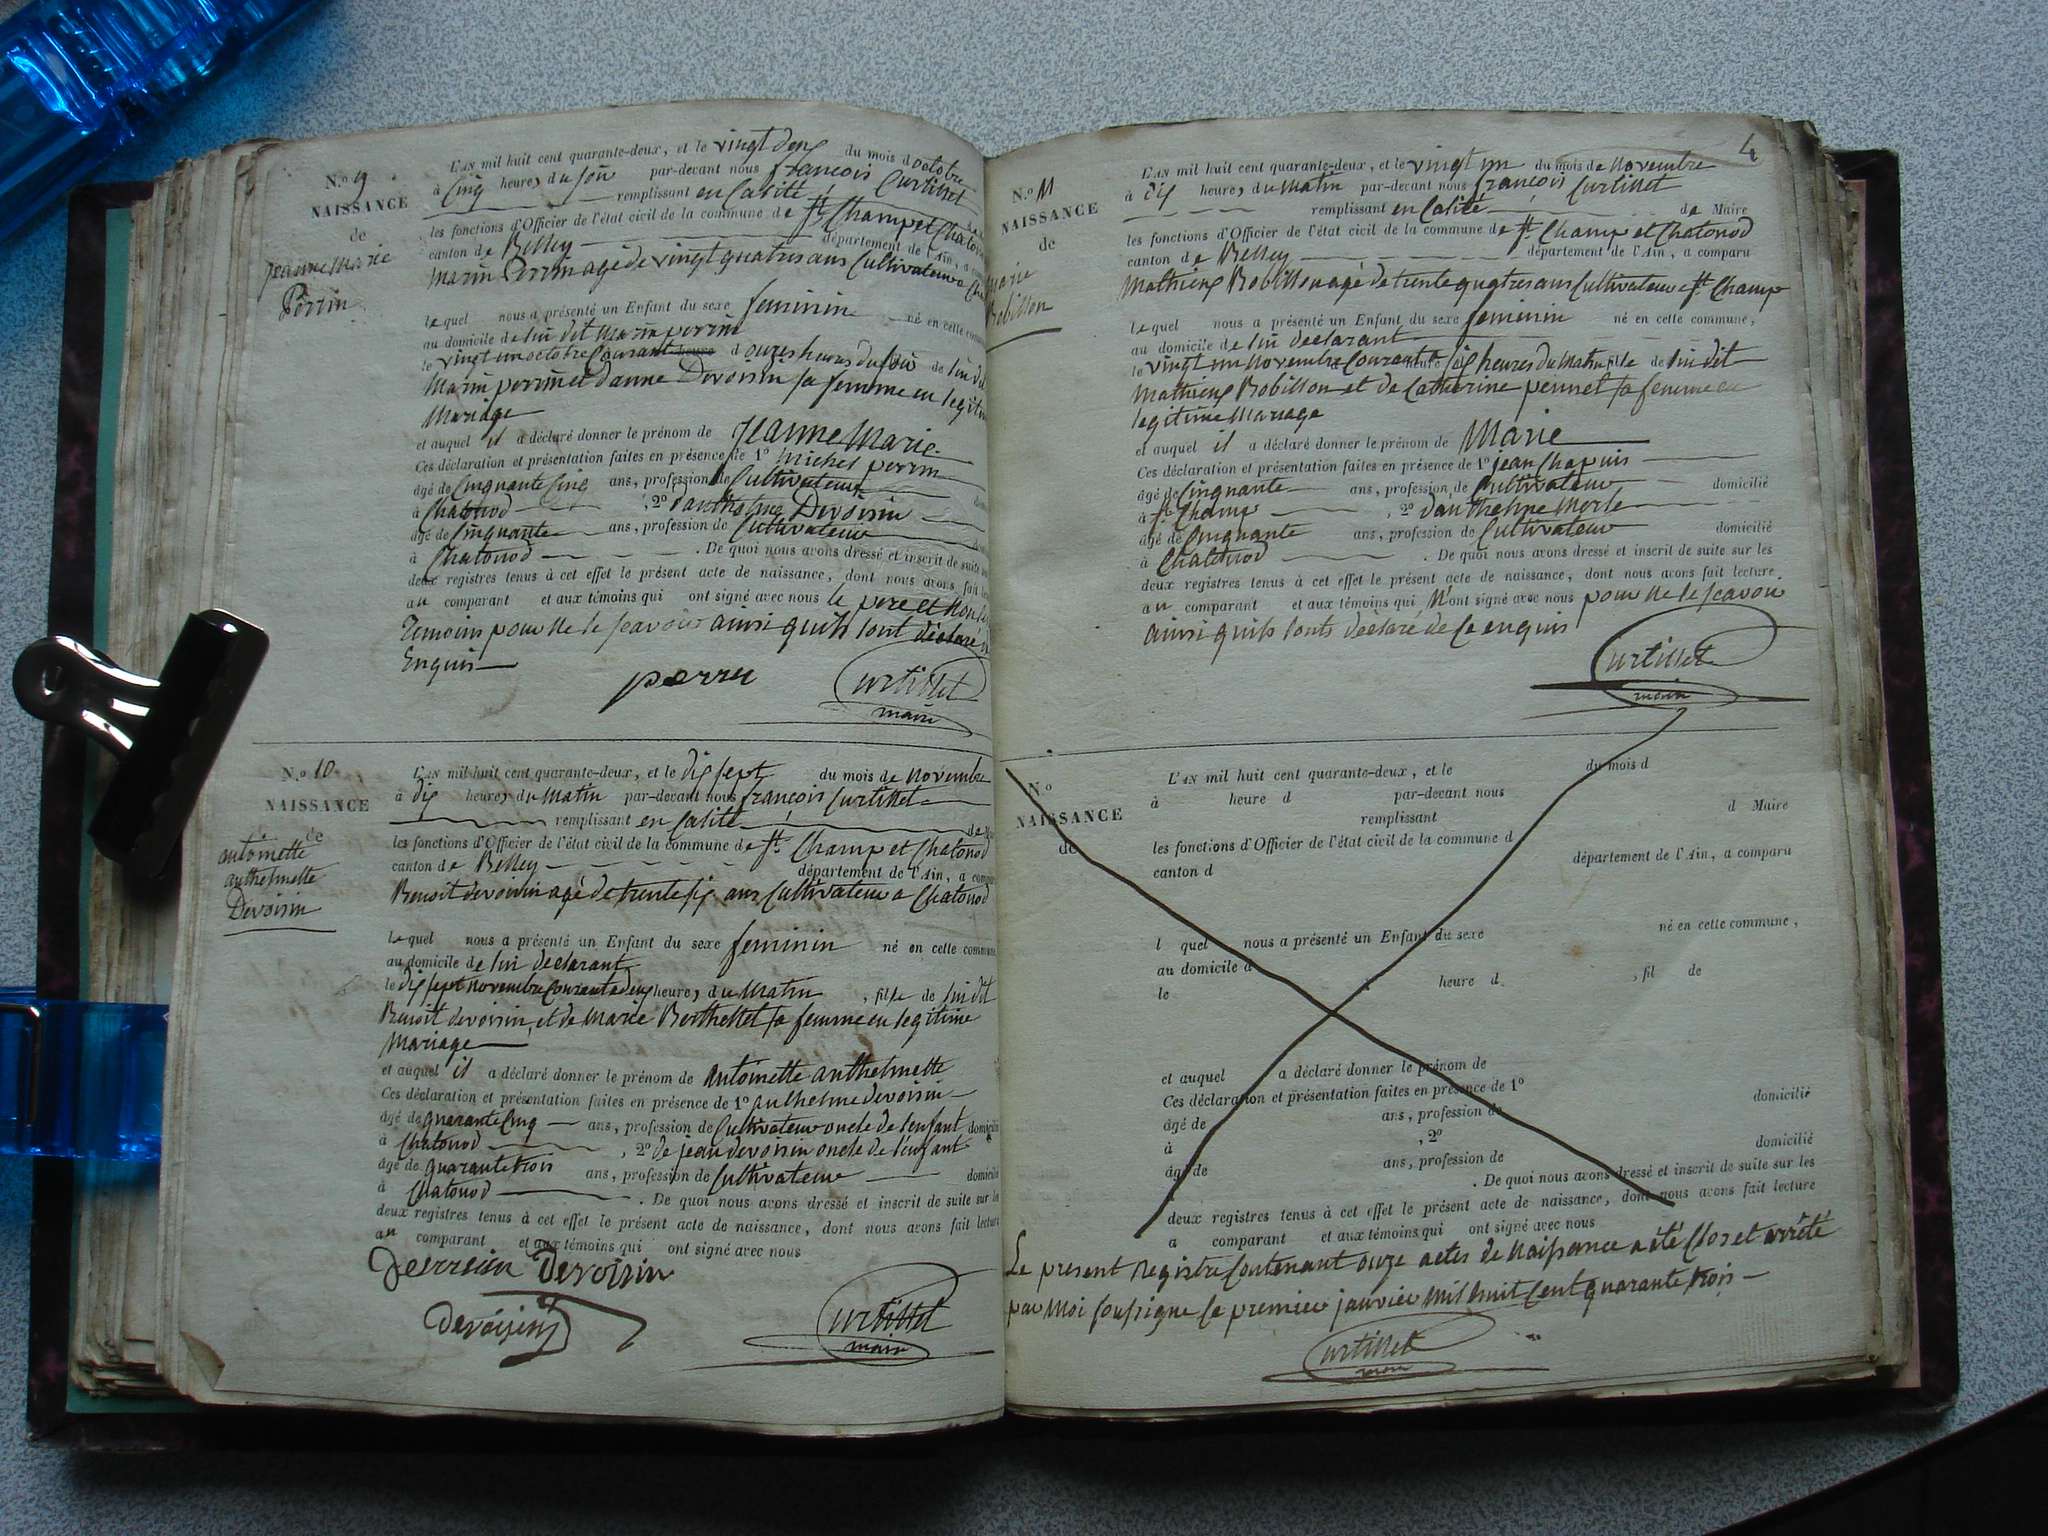 N.o 9
NAISSANCE
de
Jeanne Marie
Perrin
L'AN mil huit cent quarante-deux, et le vingt deux du mois d octobre
à Cinq heures du soir par-devant nous françois Curtillet
remplissant en Calité
les fonctions d'Officier de l'état civil de la commune de St Champ et Chatonod
canton de Belley département de l'Ain, a comparu
Marin Perrin agé de vingt quatres ans Cultivateur a
lequel nous a présenté un Enfant du sexe feminin né en cette
au domicile de lui dit Marin perrin
le vingt un octobre Courant heure d onzes heures du soir de lui dit
Marin perrin et danne Devoisin sa femme en legitime
Mariage
et auquel il a déclaré donner le prénom de Jeanne Marie
Ces déclaration et présentation faites en présence de 1º Michel perrin
âgé de Cinquante Cinq ans, profession de Cultivateur
à Chatonod , 2º danthelme Devoisin
âgé de Cinquante ans, profession de Cultivateur
à Chatonod . De quoi nous avons dressé et inscrit de suite sur
deux registres tenus à cet effet le présent acte de naissance, dont nous avons fait
au comparant et aux témoins qui ont signé avec nous le pere et non les
Temoins pour ne le scavoir ainsi quils sont déclaré de
Enquis
perru Curtillet
maire
N.o 10
NAISSANCE
de
antoinette
anthelmette
Devoisin
L'AN mil huit cent quarante-deux, et le dix sept du mois de novembre
à dix heures du Matin par-devant nous françois Curtillet
remplissant en Calité de
les fonctions d'Officier de l'état civil de la commune de St Champ et Chatonod
canton de Belley département de l'Ain, a comparu
Benoit devoisin agé de trente six ans Cultivateur a Chatonod
lequel nous a présenté un Enfant du sexe feminin né en cette commune
au domicile de lui declarant
le dix sept novembre Courant a deux heures du Matin , fille de lui dit
Benoit devoisin et de Marie Berthellet sa femme en legitime
Mariage
et auquel il a déclaré donner le prénom de antoinette anthelmette
Ces déclaration et présentation faites en présence de 1º anthelme devoisin
âgé de quarante Cinq ans, profession de Cultivateur oncle de l'enfant domicilié
à Chatonod , 2º de jean devoisin oncle de l'enfant
âgé de quarante trois ans, profession de Cultivateur domicilié
à Chatonod . De quoi nous avons dressé et inscrit de suite sur les
deux registres tenus à cet effet le présent acte de naissance, dont nous avons fait lecture
au comparant et aux témoins qui ont signé avec nous
Devoisin
devoisin Curtillet
maire
4
N.o 11
NAISSANCE
de
Marie
Robillon
L'AN mil huit cent quarante-deux, et le vingt un du mois de Novembre
à dix heures du Matin par-devant nous françois Curtillet
remplissant en Calité de Maire
les fonctions d'Officier de l'état civil de la commune de St Champ et Chatonod
canton de Belley département de l'Ain, a comparu
Mathieux Robillon agé de trente quatres ans Cultivateur a St Champ
lequel nous a présenté un Enfant du sexe feminin né en cette commune,
au domicile de lui declarant
le vingt un Novembre Courant a heure six heures du Matin fille de lui dit
Mathieux Robillon et de Catherine pennet sa femme en
legitime Mariage
et auquel il a déclaré donner le prénom de Marie
Ces déclaration et présentation faites en présence de 1º jean Chapuis
âgé de Cinquante ans, profession de Cultivateur domicilié
à St Champ , 2º danthelme Morle
âgé de Cinquante ans, profession de Cultivateur domicilié
à Chatonod . De quoi nous avons dressé et inscrit de suite sur les
deux registres tenus à cet effet le présent acte de naissance, dont nous avons fait lecture
au comparant et aux témoins qui N'ont signé avec nous pour ne le scavoir
ainsi quils sonts déclaré de ce enquis
Curtillet
maire
N.o
NAISSANCE
de
L'AN mil huit cent quarante-deux, et le du mois d
à heure d par-devant nous
remplissant d Maire
les fonctions d'Officier de l'état civil de la commune d
canton d département de l'Ain, a comparu
l quel nous a présenté un Enfant du sexe né en cette commune,
au domicile d
le heure d , fil de
et auquel a déclaré donner le prénom de
Ces déclaration et présentation faites en présence de 1º
âgé de ans, profession de domicilié
à , 2º
âgé de ans, profession de domicilié
. De quoi nous avons dressé et inscrit de suite sur les
deux registres tenus à cet effet le présent acte de naissance, dont nous avons fait lecture
a comparant et aux témoins qui ont signé avec nous
Le present Registre Contenant onze actes de Naissance a été Clos et arrêté
par Moi soussigné le premier janvier Mil huit Cent quarante trois
Curtillet
maire